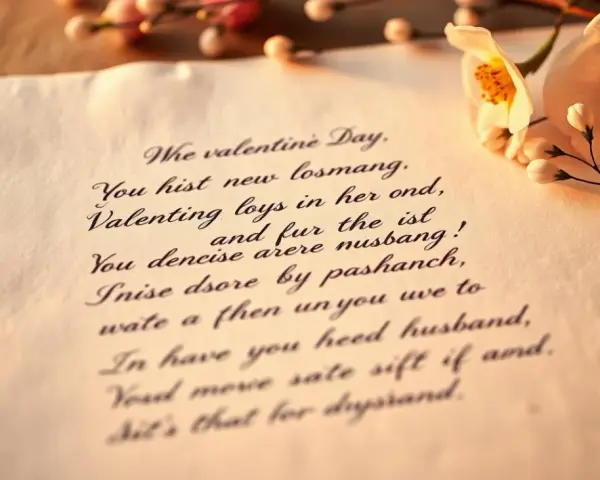 Whe valentinè Day.
You hist new losmang.
Valenting loys in her ond,
and fur the ist
You dencise arere nusbang!
Snise dsore by pashanch,
wate a fhen unyou uve to
In have you heed husband,
Youd mowe sate sift if amd.
that for